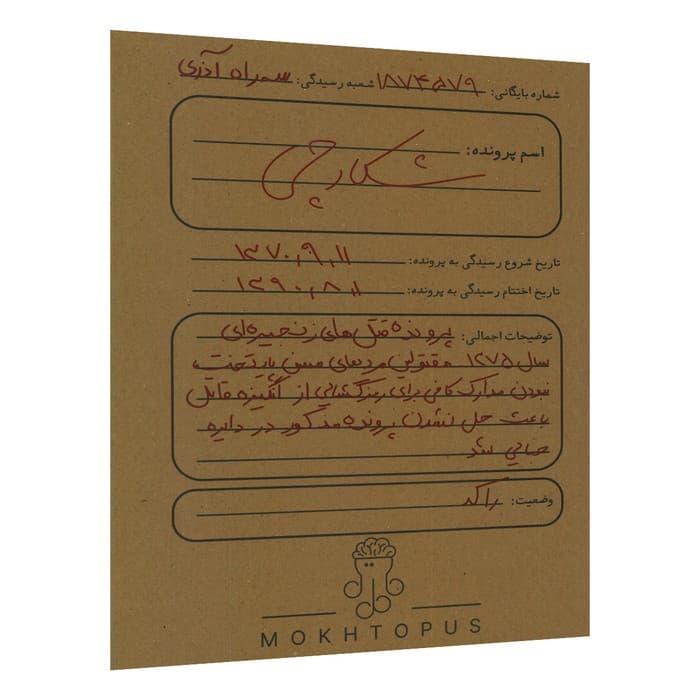 شماره بایگانی: ۱۸۷۴۵۷۹ شعبه رسیدگی: سهراه آذری
اسم پرونده:
شکارچی
تاریخ شروع رسیدگی به پرونده: ۱۳۷۰,۹,۱۱
تاریخ اختتام رسیدگی به پرونده: ۱۳۹۰,۸,۱
توضیحات اجمالی: پرونده قتل های زنجیره ای
سال ۱۳۷۵ مقتولین مردهای مسن پایتخت
نبودن مدارک کافی برای رمزگشایی از انگیزه قاتل
باعث حل نشدن پرونده مذکور در دایره
جنایی شد
وضعیت: راکد
MOKHTOPUS